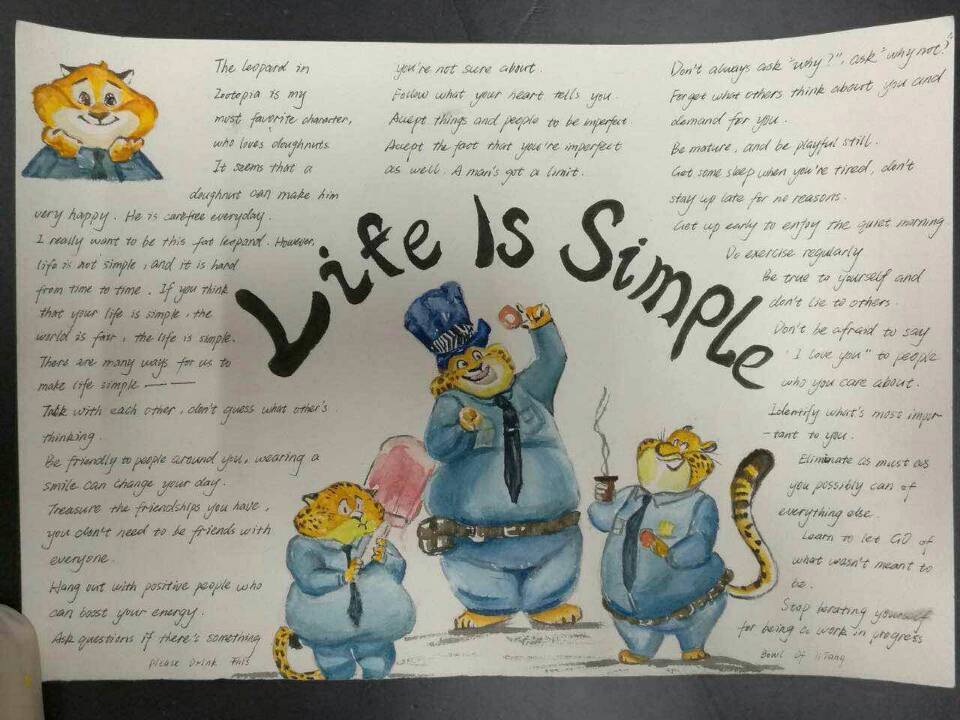 The leopard in
Zootopia is my
most favorite character,
who loves doughnuts.
It seems that a
doughnut can make him
very happy. He is carefree everyday.
I really want to be this fat leopard. However,
life is not simple, and it is hard
from time to time. If you think
that your life is simple, the
world is fair, the life is simple.
There are many ways for us to
make life simple — —
Talk with each other, don't guess what other's
thinking.
Be friendly to people around you, wearing a
smile can change your day.
Treasure the friendships you have,
you don't need to be friends with
everyone.
Hang out with positive people who
can boost your energy.
Ask questions if there's something
Please Drink This
you're not sure about.
Follow what your heart tells you.
Accept things and people to be imperfect.
Accept the fact that you're imperfect
as well. A man's got a limit.
Life Is Simple
Don't always ask "why?", ask "why not?"
Forget what others think about you and
demand for you.
Be mature, and be playful still.
Get some sleep when you're tired, don't
stay up late for no reasons.
Get up early to enjoy the quiet morning
Do exercise regularly
Be true to yourself and
don't lie to others.
Don't be afraid to say
"I love you" to people
who you care about.
Identify what's most impor-
-tant to you.
Eliminate as must as
you possibly can of
everything else.
Learn to let GO of
what wasn't meant to
be.
Stop berating yourself
for being a work in progress
Bowl Of JiTang